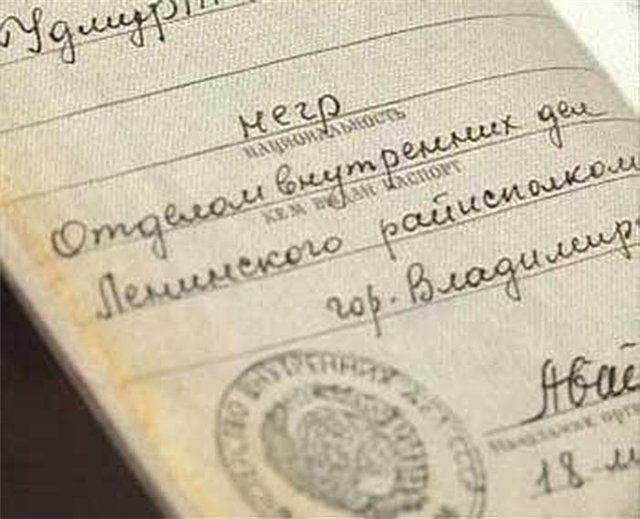 Удмурт
негр
НАЦИОНАЛЬНОСТЬ
Отделом внутренних дел
КЕМ ВЫДАН ПАСПОРТ
Ленинского райисполком
гор. Владимир
Авай
Начальник орг
18 м
ВНУТРЕННИХ ДЕЛ СССР